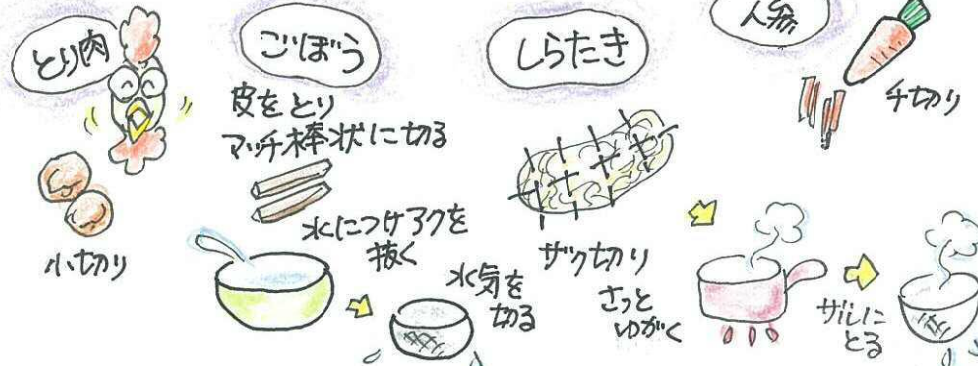 とり肉
小切り
ごぼう
皮をとり
マッチ棒状に切る
水につけアクを
抜く
水気を
切る
しらたき
ザク切り
さっと
ゆがく
ザルに
とる
人参
千切り